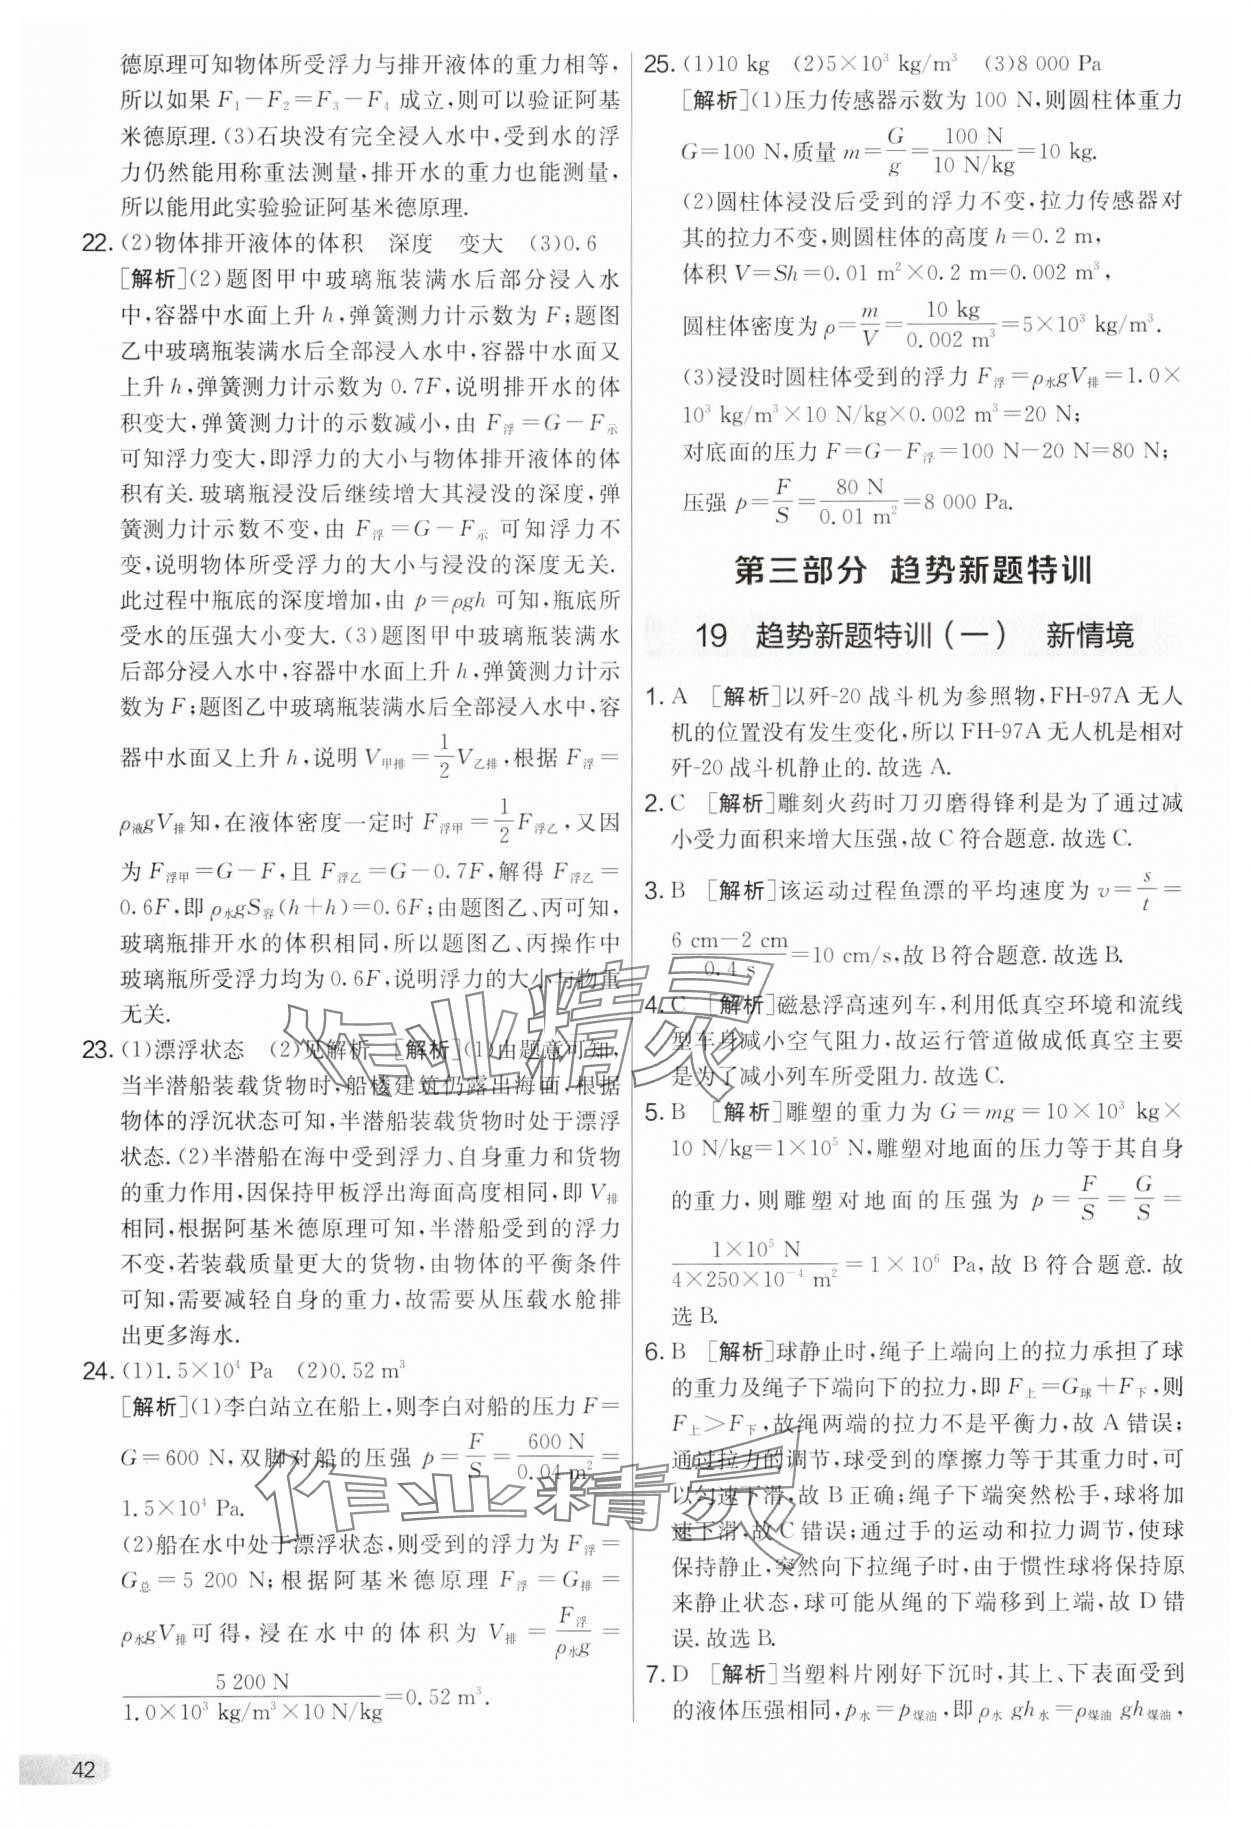 德原理可知物体所受浮力与排开液体的重力相等,
所以如果 F₁－F₂＝F₃－F₄ 成立,则可以验证阿基
米德原理.(3)石块没有完全浸入水中,受到水的浮
力仍然能用称重法测量,排开水的重力也能测量,
所以能用此实验验证阿基米德原理.
22. (2)物体排开液体的体积　深度　变大　(3)0.6
[解析](2)题图甲中玻璃瓶装满水后部分浸入水
中,容器中水面上升 h,弹簧测力计示数为 F;题图
乙中玻璃瓶装满水后全部浸入水中,容器中水面又
上升 h,弹簧测力计示数为 0.7F,说明排开水的体
积变大,弹簧测力计的示数减小,由 F浮＝G－F示
可知浮力变大,即浮力的大小与物体排开液体的体
积有关.玻璃瓶浸没后继续增大其浸没的深度,弹
簧测力计示数不变,由 F浮＝G－F示 可知浮力不
变,说明物体所受浮力的大小与浸没的深度无关.
此过程中瓶底的深度增加,由 p＝ρgh 可知,瓶底所
受水的压强大小变大.(3)题图甲中玻璃瓶装满水
后部分浸入水中,容器中水面上升 h,弹簧测力计示
数为 F;题图乙中玻璃瓶装满水后全部浸入水中,容
器中水面又上升 h,说明 V甲排＝1/2 V乙排,根据 F浮＝
ρ液gV排知,在液体密度一定时 F浮甲＝1/2 F浮乙,又因
为 F浮甲＝G－F,且 F浮乙＝G－0.7F,解得 F浮乙＝
0.6F,即 ρ水gS容(h＋h)＝0.6F;由题图乙、丙可知,
玻璃瓶排开水的体积相同,所以题图乙、丙操作中
玻璃瓶所受浮力均为 0.6F,说明浮力的大小与物重
无关.
23. (1)漂浮状态　(2)见解析　[解析](1)由题意可知,
当半潜船装载货物时,船楼建筑仍露出海面,根据
物体的浮沉状态可知,半潜船装载货物时处于漂浮
状态.(2)半潜船在海中受到浮力、自身重力和货物
的重力作用,因保持甲板浮出海面高度相同,即 V排
相同,根据阿基米德原理可知,半潜船受到的浮力
不变,若装载质量更大的货物,由物体的平衡条件
可知,需要减轻自身的重力,故需要从压载水舱排
出更多海水.
24. (1)1.5×10⁴ Pa　(2)0.52 m³
[解析](1)李白站立在船上,则李白对船的压力 F＝
G＝600 N,双脚对船的压强 p＝F/S＝600 N/0.04 m²＝
1.5×10⁴ Pa.
(2)船在水中处于漂浮状态,则受到的浮力为 F浮＝
G总＝5 200 N;根据阿基米德原理 F浮＝G排＝
ρ水gV排可得,浸在水中的体积为 V排＝F浮/ρ水g＝
5 200 N/1.0×10³ kg/m³×10 N/kg＝0.52 m³.
25. (1)10 kg　(2)5×10³ kg/m³　(3)8 000 Pa
[解析](1)压力传感器示数为 100 N,则圆柱体重力
G＝100 N,质量 m＝G/g＝100 N/10 N/kg＝10 kg.
(2)圆柱体浸没后受到的浮力不变,拉力传感器对
其的拉力不变,则圆柱体的高度 h＝0.2 m,
体积 V＝Sh＝0.01 m²×0.2 m＝0.002 m³,
圆柱体密度为 ρ＝m/V＝10 kg/0.002 m³＝5×10³ kg/m³.
(3)浸没时圆柱体受到的浮力 F浮＝ρ水gV排＝1.0×
10³ kg/m³×10 N/kg×0.002 m³＝20 N;
对底面的压力 F＝G－F浮＝100 N－20 N＝80 N;
压强 p＝F/S＝80 N/0.01 m²＝8 000 Pa.
第三部分 趋势新题特训
19　趋势新题特训(一)　新情境
1. A　[解析]以歼-20 战斗机为参照物,FH-97A 无人
机的位置没有发生变化,所以 FH-97A 无人机是相对
歼-20 战斗机静止的.故选 A.
2. C　[解析]雕刻火药时刀刃磨得锋利是为了通过减
小受力面积来增大压强,故 C 符合题意.故选 C.
3. B　[解析]该运动过程鱼漂的平均速度为 v＝s/t＝
6 cm－2 cm/0.4 s＝10 cm/s,故 B 符合题意.故选 B.
4. C　[解析]磁悬浮高速列车,利用低真空环境和流线
型车身减小空气阻力,故运行管道做成低真空主要
是为了减小列车所受阻力.故选 C.
5. B　[解析]雕塑的重力为 G＝mg＝10×10³ kg×
10 N/kg＝1×10⁵ N,雕塑对地面的压力等于其自身
的重力,则雕塑对地面的压强为 p＝F/S＝G/S＝
1×10⁵ N/4×250×10⁻⁴ m²＝1×10⁶ Pa,故 B 符合题意.故
选 B.
6. B　[解析]球静止时,绳子上端向上的拉力承担了球
的重力及绳子下端向下的拉力,即 F上＝G球＋F下,则
F上＞F下,故绳两端的拉力不是平衡力,故 A 错误;
通过拉力的调节,球受到的摩擦力等于其重力时,可
以匀速下滑,故 B 正确;绳子下端突然松手,球将加
速下滑,故 C 错误;通过手的运动和拉力调节,使球
保持静止,突然向下拉绳子时,由于惯性球将保持原
来静止状态,球可能从绳的下端移到上端,故 D 错
误.故选 B.
7. D　[解析]当塑料片刚好下沉时,其上、下表面受到
的液体压强相同,p水＝p煤油,即 ρ水 gh水＝ρ煤油 gh煤油,
42
作业精灵
作业精灵